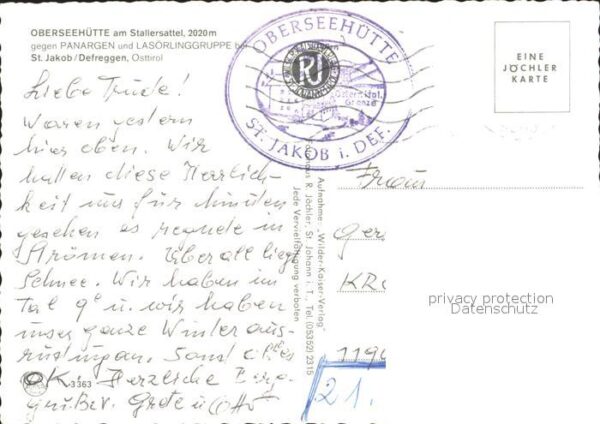 OBERSEEHÜTTE am Stallersattel, 2020 m
gegen PANARGEN und LASÖRLINGGRUPPE bei
St. Jakob/Defreggen, Osttirol
Liebe Trude!
Waren gestern
hier oben. Wir
hatten diese Herrlich-
keit nur für Minuten
gesehen es regnete in
Strömen. Überall liegt
Schnee. Wir haben im
Tal 9° u. wir haben
unser ganze Winteraus-
rüstung an. Sonst alles
OK. Herzliche Berg-
grüße Grete u. Otto
3363
OBERSEEHÜTTE
RJ
Grenze
ST. JAKOB i. DEF.
Aufnahme „Wilder-Kaiser-Verlag"
R. Jöchler, St. Johann i. T., Tel. (05352) 2315
Jede Vervielfältigung verboten
EINE
JÖCHLER
KARTE
Frau
1190
21.
privacy protection
Datenschutz